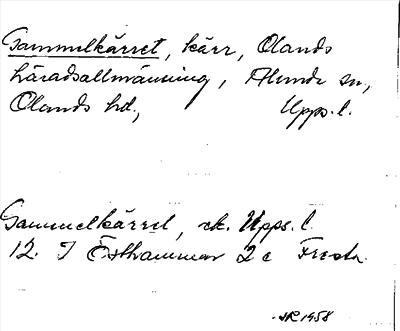 Gammelkärret, kärr, Olands
häradsallmänning, Alunda sn,
Olands hd, Upps. l.
Gammelkärret, ek. Upps. l.
12. I Östhammar 2 c
1958